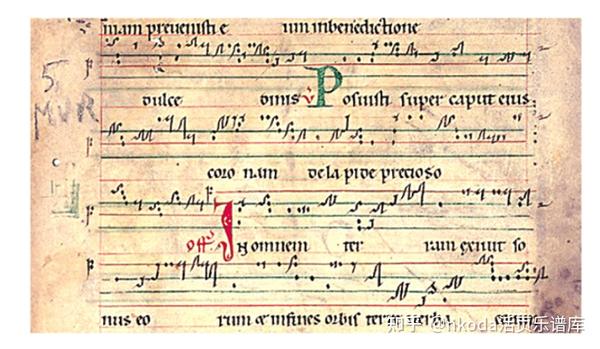 niam prevenisti e um inbenedictione
5.
MVR
dulce dinis v Posuisti super caput eius
coro nam delapide precioso
off In omnem ter ram exivit so
nus eo rum & infines orbis terre verba
知乎 @nkoda诺页乐谱库